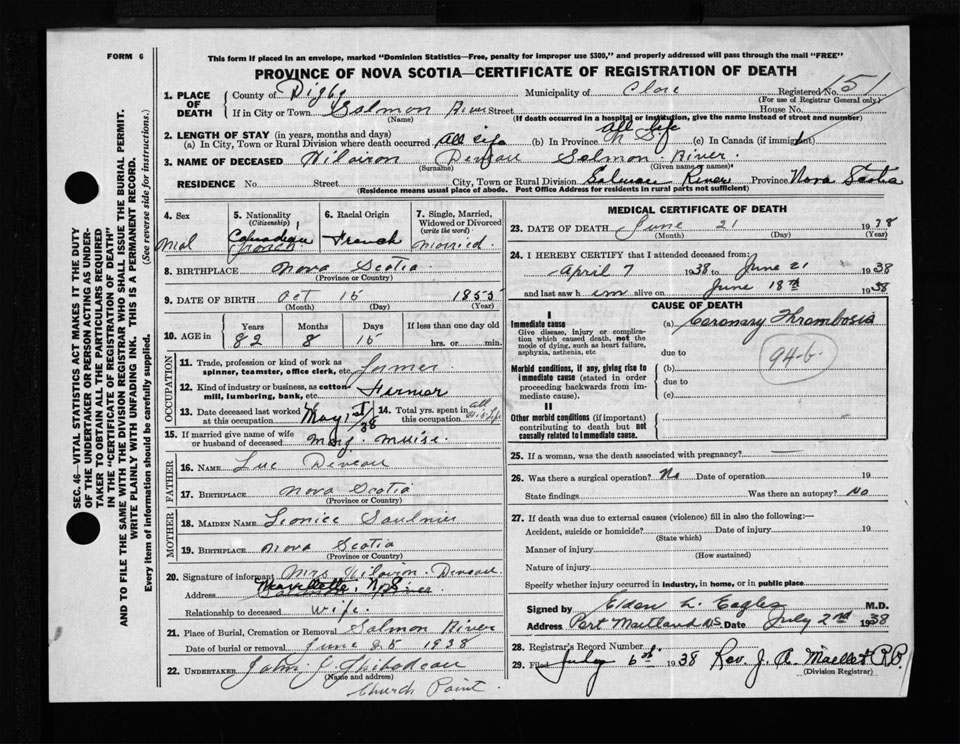 FORM 6
This form if placed in an envelope, marked "Dominion Statistics—Free, penalty for improper use $300," and properly addressed will pass through the mail "FREE"
PROVINCE OF NOVA SCOTIA—CERTIFICATE OF REGISTRATION OF DEATH
1. PLACE OF DEATH County of Digby Municipality of Clare Registered No. 151
(For use of Registrar General only)
If in City or Town Salmon River Street House No.
(Name) (If death occurred in a hospital or institution, give the name instead of street and number)
2. LENGTH OF STAY (in years, months and days)
(a) In City, Town or Rural Division where death occurred All life (b) In Province All life N S (c) In Canada (if immigrant)
3. NAME OF DECEASED Hilairon Deveau Salmon River.
(Surname) (Given name or names)
RESIDENCE No. Street City, Town or Rural Division Salmon River Province Nova Scotia
(Residence means usual place of abode. Post Office Address for residents in rural parts not sufficient)
4. Sex
Mal
5. Nationality (Citizenship)
Canadian
French
6. Racial Origin
French
7. Single, Married, Widowed or Divorced (write the word)
Married.
8. BIRTHPLACE Nova Scotia.
(Province or Country)
9. DATE OF BIRTH Oct 15 1855
(Month) (Day) (Year)
10. AGE in Years Months Days If less than one day old
82 8 15 hrs. or min.
OCCUPATION
11. Trade, profession or kind of work as spinner, teamster, office clerk, etc. farmer
12. Kind of industry or business, as cotton mill, lumbering, bank, etc. Farmer
13. Date deceased last worked at this occupation May 1st/38 14. Total yrs. spent in this occupation all His Life
15. If married give name of wife or husband of deceased Marg. Muise.
FATHER
16. NAME Luc Deveau
17. BIRTHPLACE Nova Scotia
(Province or Country)
MOTHER
18. MAIDEN NAME Leonice Saulnier
19. BIRTHPLACE Nova Scotia
(Province or Country)
20. Signature of informant Mrs Hilairon Deveau
Address Mavillette, N.S.
Relationship to deceased Wife.
21. Place of Burial, Cremation or Removal Salmon River
Date of burial or removal June 25 1938
22. UNDERTAKER John J. Thibodeau
(Name and address)
Church Point.
MEDICAL CERTIFICATE OF DEATH
23. DATE OF DEATH June 21 1938
(Month) (Day) (Year)
24. I HEREBY CERTIFY that I attended deceased from:
April 7 1938 to June 21 1938
and last saw h im alive on June 18th 1938
CAUSE OF DEATH
I
Immediate cause (a) Coronary Thrombosis
Give disease, injury or complication which caused death, not the mode of dying, such as heart failure, asphyxia, asthenia, etc
due to
94-b.
Morbid conditions, if any, giving rise to immediate cause (stated in order proceeding backwards from immediate cause)
(b)
due to
(c)
II
Other morbid conditions (if important) contributing to death but not causally related to immediate cause.
25. If a woman, was the death associated with pregnancy? —
26. Was there a surgical operation? No Date of operation 19
State findings Was there an autopsy? No
27. If death was due to external causes (violence) fill in also the following:—
Accident, suicide or homicide? Date of injury 19
(State which)
Manner of injury
(How sustained)
Nature of injury
Specify whether injury occurred in industry, in home, or in public place
Signed by Elden L. Eagles M.D.
Address Port Maitland N.S. Date July 2nd 1938
28. Registrar's Record Number
29. Filed July 6th 1938 Rev. J. A.
(Division Registrar)
SEC. 46—VITAL STATISTICS ACT MAKES IT THE DUTY
OF THE UNDERTAKER OR PERSON ACTING AS UNDER-
TAKER TO OBTAIN ALL THE PARTICULARS REQUIRED
IN THE "CERTIFICATE OF REGISTRATION OF DEATH"
AND TO FILE THE SAME WITH THE DIVISION REGISTRAR WHO SHALL ISSUE THE BURIAL PERMIT.
WRITE PLAINLY WITH UNFADING INK. THIS IS A PERMANENT RECORD.
Every item of information should be carefully supplied. (See reverse side for instructions.)